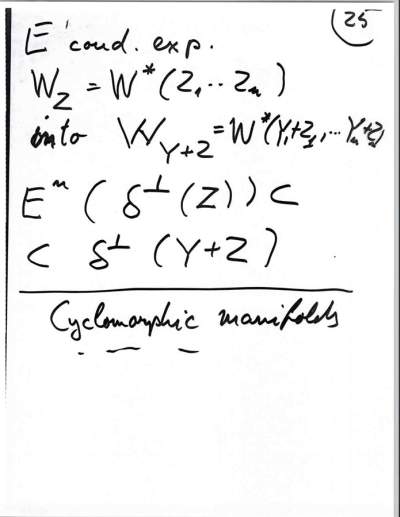 25
E cond. exp.
W_Z = W*(Z_1 .. Z_n)
into W_{Y+Z} = W*(Y_1+Z_1, ... Y_n+Z_n)
E^n (δ^⊥(Z)) ⊂
⊂ δ^⊥ (Y+Z)
Cyclomorphic manifolds